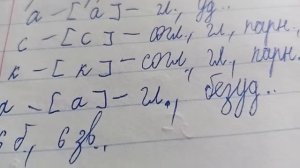 а – [а́] – гл., уд..
с – [с] – согл, гл, парн.
к – [к] – согл, гл, парн.
а – [а] – гл., безуд..
6 б, 6 зв.,